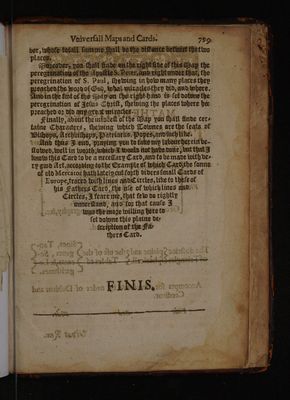 Vniversall Maps and Cards. 759
ber, whose totall summe shall be the distance betwixt the two
places.
Moreover, you shall finde on the right side of this Map the
peregrination of the Apostle S. Peter, and right under that, the
peregrination of S. Paul, shewing in how many places they
preached the word of God, what miracles they did, and where.
And in the foot of the Map on the right hand is set downe the
peregrination of Iesus Christ, shewing the places where hee
preached or did any great miracles.
Finally, about the middest of the Map you shall finde cer-
taine Characters, shewing which Townes are the seats of
Bishops, Archbishops, Patriarks, Popes, and such like.
And thus I end, praying you to take my labour herein be-
stowed, well in worth, which I would not have done, but that I
know this Card to be a necessary Card, and to be made with ve-
ry good Art, according to the Example of which Card, the sonne
of old Mercator hath lately cut forth divers small Cards of
Europe, traced with lines and Circles, like to these of
his Fathers Card, the use of which lines and
Circles, I feare me, that few do rightly
understand, and for that cause I
was the more willing here to
set downe this plaine de-
scription of the Fa-
thers Card.
FINIS.